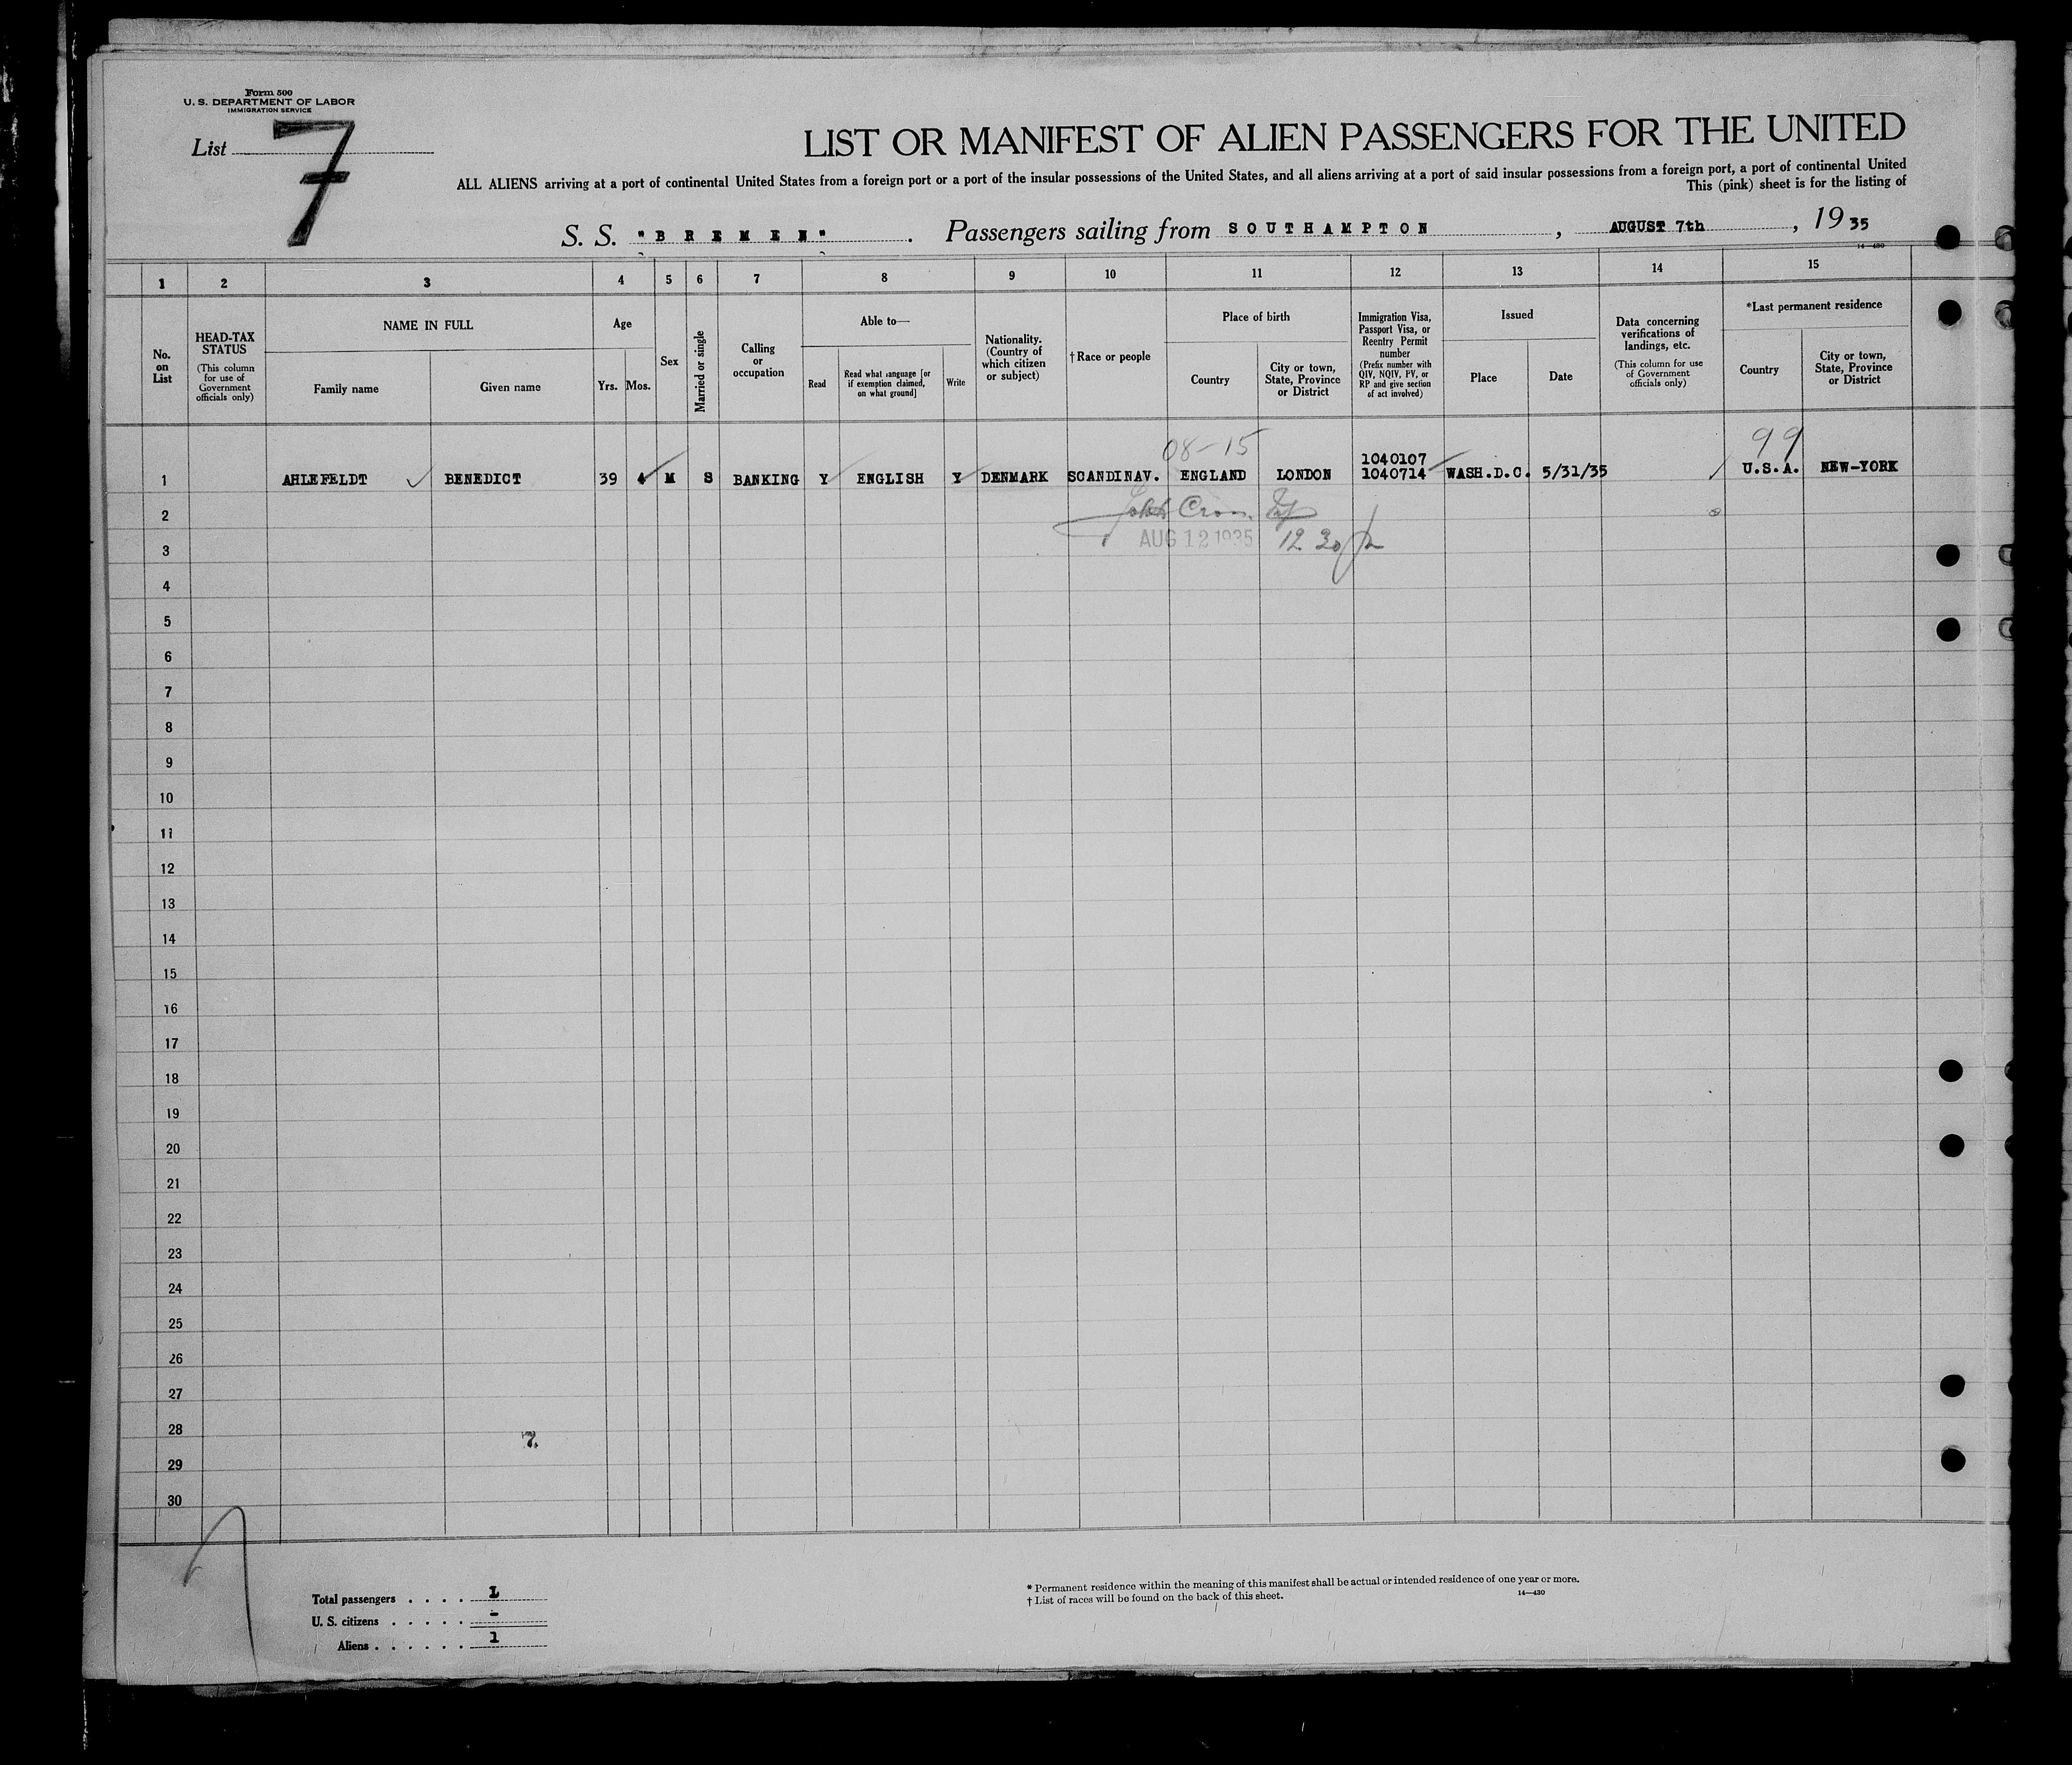 Form 500
U. S. DEPARTMENT OF LABOR
IMMIGRATION SERVICE
List 7
LIST OR MANIFEST OF ALIEN PASSENGERS FOR THE UNITED
ALL ALIENS arriving at a port of continental United States from a foreign port or a port of the insular possessions of the United States, and all aliens arriving at a port of said insular possessions from a foreign port, a port of continental United
This (pink) sheet is for the listing of
S. S. "BREMEN". Passengers sailing from SOUTHAMPTON, AUGUST 7th, 1935
14—430
1 2 3 4 5 6 7 8 9 10 11 12 13 14 15
No. on List
HEAD-TAX STATUS
(This column for use of Government officials only)
NAME IN FULL
Family name
Given name
Age
Yrs. Mos.
Sex
Married or single
Calling or occupation
Able to—
Read
Read what language [or if exemption claimed, on what ground]
Write
Nationality. (Country of which citizen or subject)
†Race or people
Place of birth
Country
City or town, State, Province or District
Immigration Visa, Passport Visa, or Reentry Permit number
(Prefix number with QIV, NQIV, PV, or RP and give section of act involved)
Issued
Place
Date
Data concerning verifications of landings, etc.
(This column for use of Government officials only)
*Last permanent residence
Country
City or town, State, Province or District
08-15
99
1040107
1 AHLEFELDT BENEDICT 39 4 M S BANKING Y ENGLISH Y DENMARK SCANDINAV. ENGLAND LONDON 1040714 WASH.D.C. 5/31/35 U.S.A. NEW-YORK
2
3 AUG 12 1935 12 30
4
5
6
7
8
9
10
11
12
13
14
15
16
17
18
19
20
21
22
23
24
25
26
27
28
7.
29
30
Total passengers . . . . 1
U. S. citizens . . . . . -
Aliens . . . . . . 1
* Permanent residence within the meaning of this manifest shall be actual or intended residence of one year or more.
† List of races will be found on the back of this sheet.
14—430